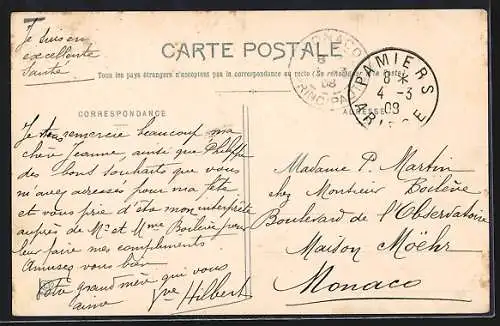 Je suis en
excellente
Santé
CARTE POSTALE
Tous les pays étrangers n'acceptent pas la correspondance au recto (Se renseigner à la Poste)
MONACO
8
08
PRINCIPAUTÉ
PAMIERS
8 *
4 - 3
09
ARIEGE
CORRESPONDANCE
ADRESSE
Je vous remercie beaucoup ma
chère Jeanne, ainsi que Philippe
des bons souhaits que vous
m'avez adressés pour ma fête
et vous prie d'être mon interprète
auprès de Mr et Mme Boilève pour
leur faire mes compliments
Amusez vous bien
Votre grand mère qui vous
aime Vve Hilbert
Madame P. Martin
chez Monsieur Boilève
Boulevard de l'Observatoire
Maison Möehr
Monaco